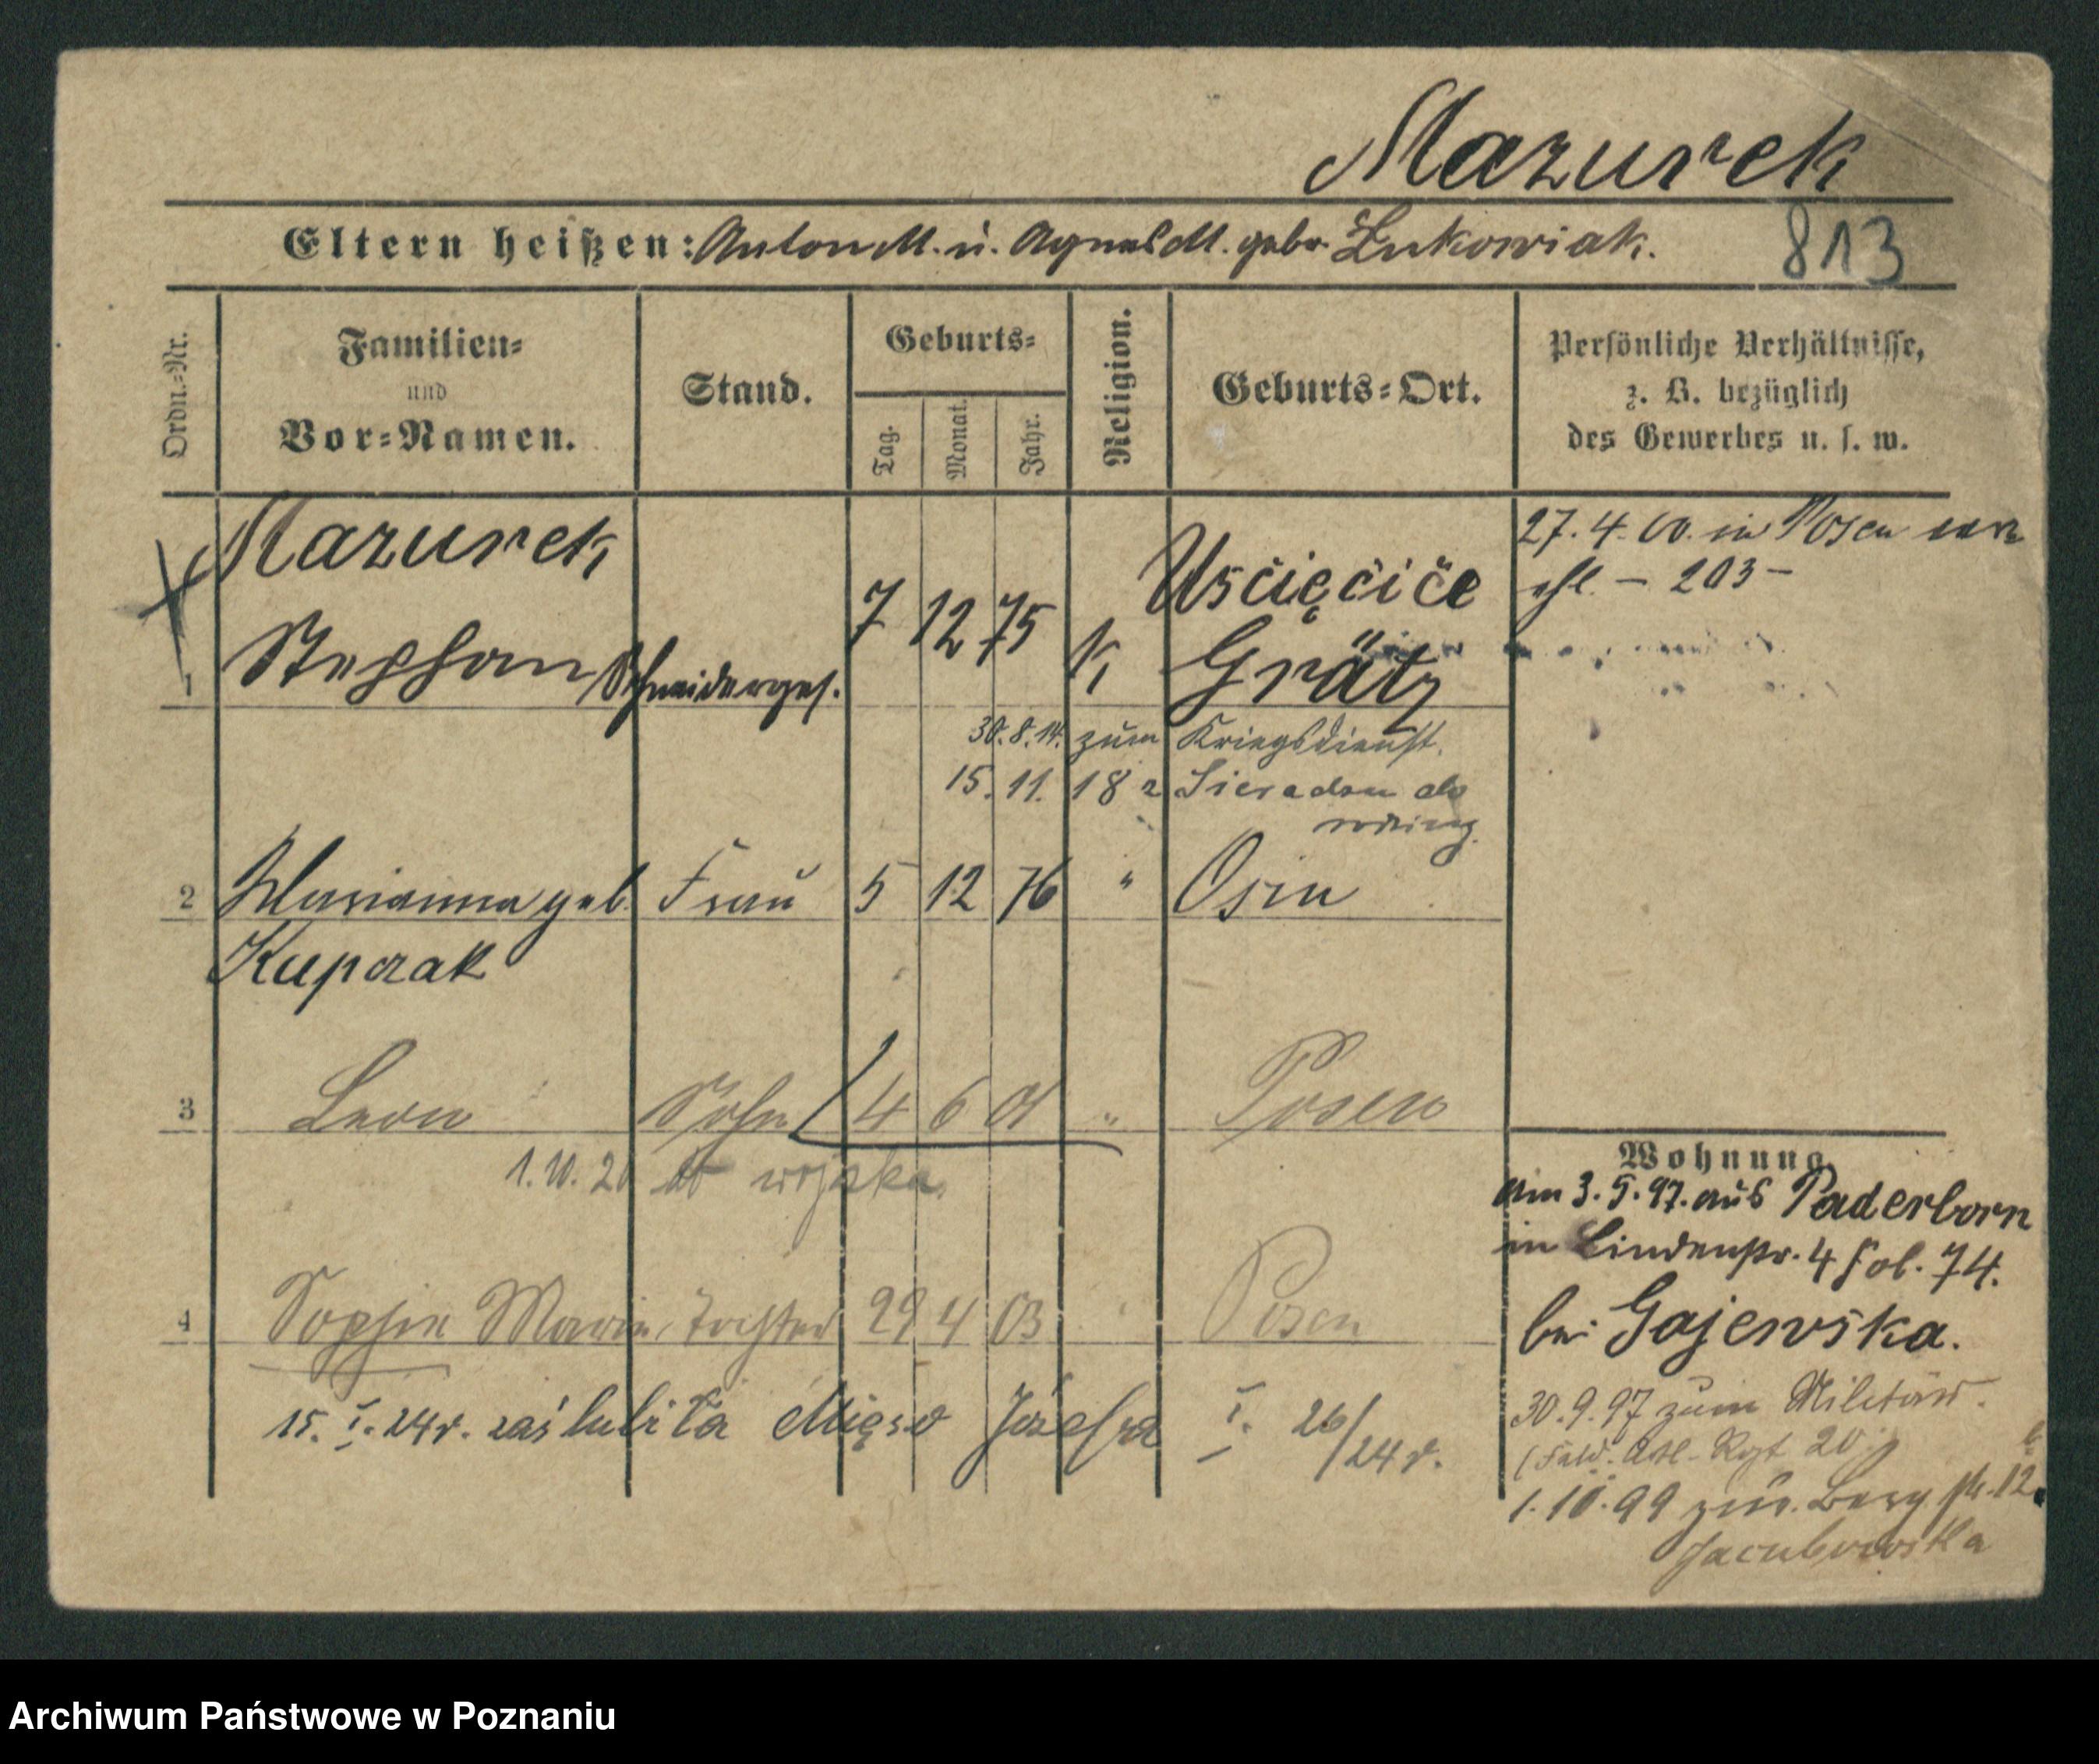 Mazurek
Eltern heißen: Anton M. u. Agnes M. gebr. Lukowiak.
813
Ordn.-Nr.
Familien-
und
Vor-Namen.
Stand.
Geburts-
Tag.
Monat.
Jahr.
Religion.
Geburts-Ort.
Persönliche Verhältnisse,
z. B. bezüglich
des Gewerbes u. s. w.
Mazurek
1 Stephan Schneiderges. 7 12 75 K Uścięcice
Grätz
27.4.00. in Posen
ehl. - 203 -
30.8.14. zum Kriegsdienst.
15. 11. 18 Sieradzu
2 Marianna geb. Frau 5 12 76 " Osin
Kupczak
3 Leon Sohn 4 6 01 " Posen
1.10.20 do wojska
4 Sophie Marie, Tochter 29 4 03 " Posen
15. I. 24 r. zaślubiła Mięso Józefa I. 26/24 r.
Wohnung.
Am 3.5.97. aus Paderborn
in Lindenstr. 4 fol. 74.
bei Gajewska.
30.9.97 zum Militär.
(Feld. Artl. Rgt 20)
1.10.99 zur. Berg str. 12
Jacubowska
Archiwum Państwowe w Poznaniu